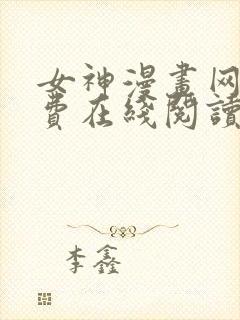 女神漫畫网
費在綫閱讀
李鑫